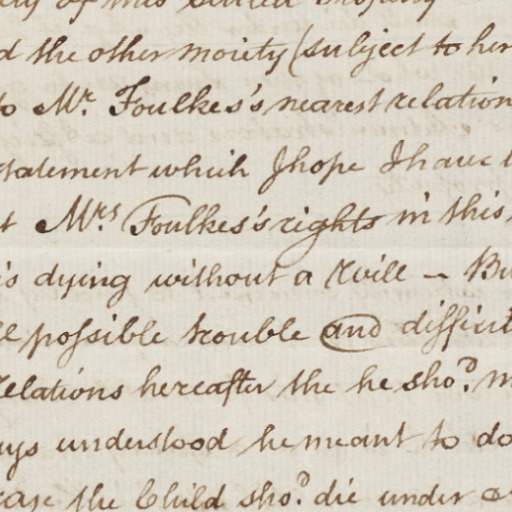 of this settled Property
d the other moiety (subject to her
to Mr. Foulkes's nearest relation
statement which I hope I have
t Mrs. Foulkes's rights in this
is dying without a Will - Bu
ll possible trouble and difficult
relations hereafter the he shod. m
ys understood he meant to do
case the Child shod. die under